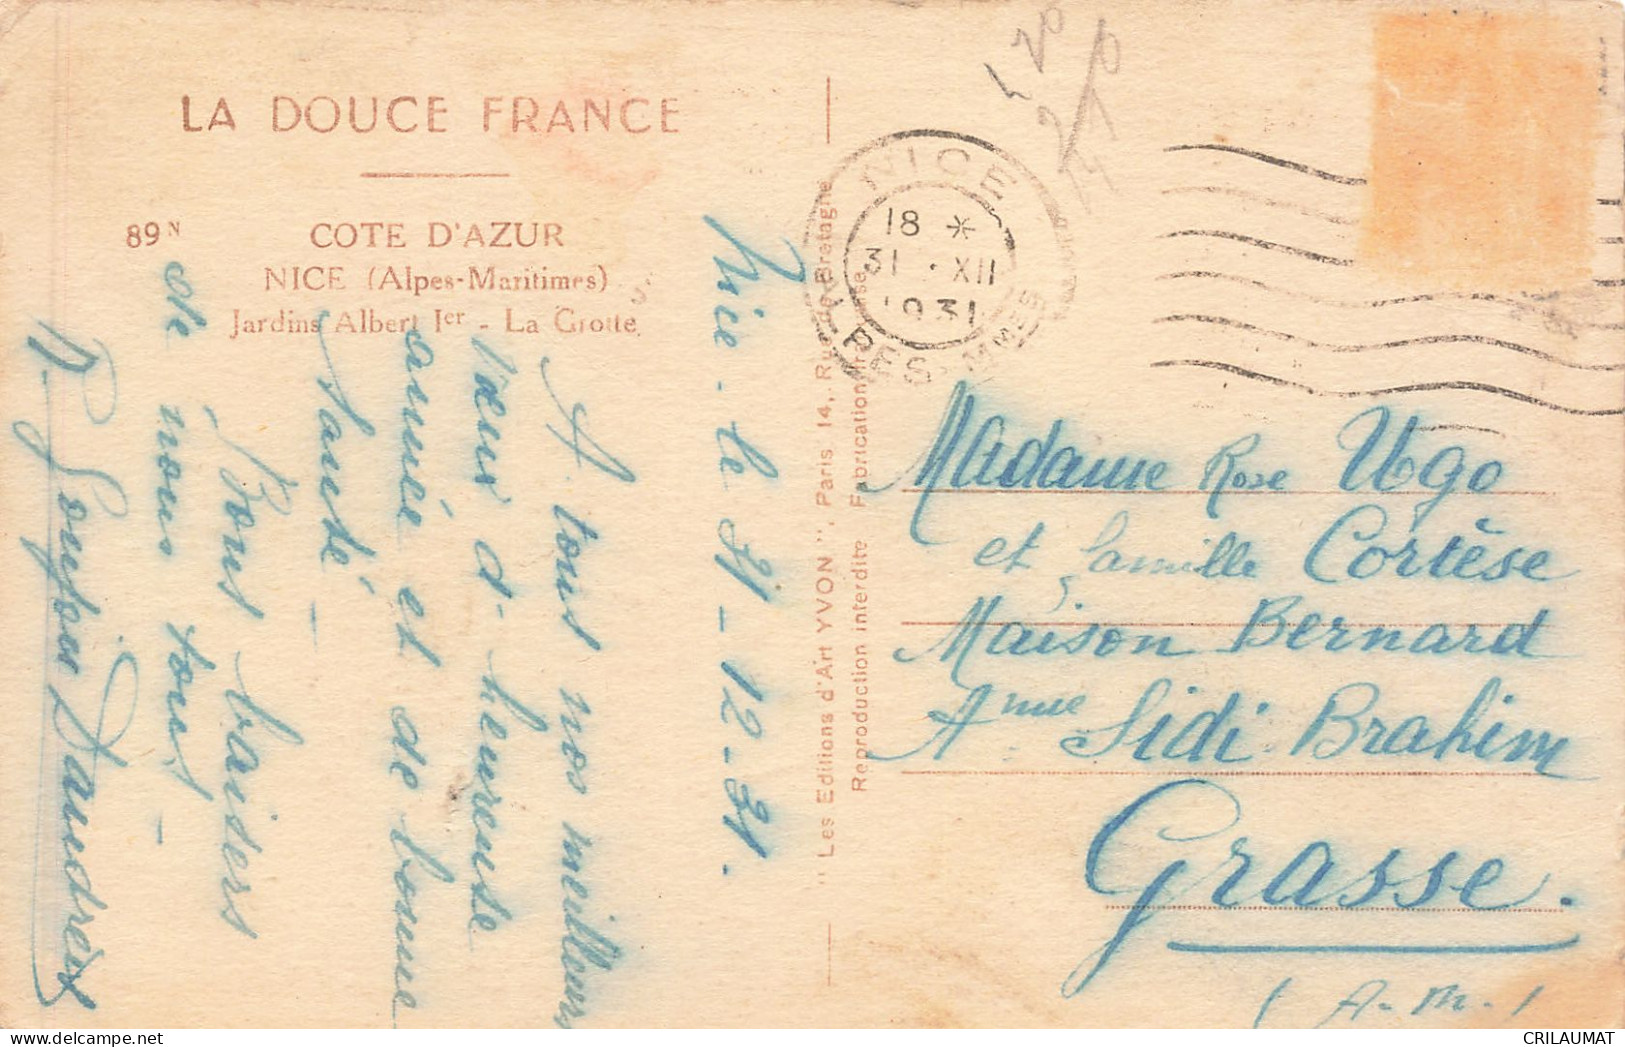 LA DOUCE FRANCE
89 N
COTE D'AZUR
NICE (Alpes-Maritimes)
Jardins Albert Ier - La Grotte
Nice - le 31 - 12 - 31.
A tous nos meilleurs
vœux d'heureuse
année et de bonne
santé -
Bons baisers
de nous tous -
"Les Editions d'Art YVON", Paris 14, Rue de Bretagne
Reproduction interdite Fabrication française
NICE
18 *
31 · XII
1931
MMES
Madame Rose Ugo
et famille Cortèse
Maison Bernard
Anue Sidi Brahim
Grasse.
(A-M-)
CRILAUMAT